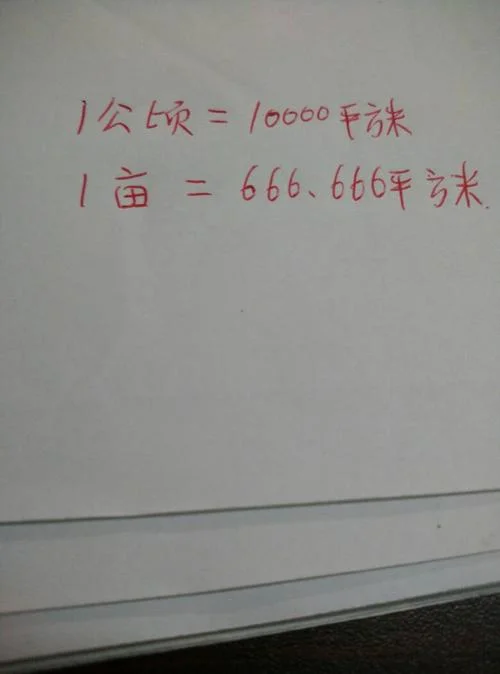 1公顷=10000平方米
1亩=666、666平方米.